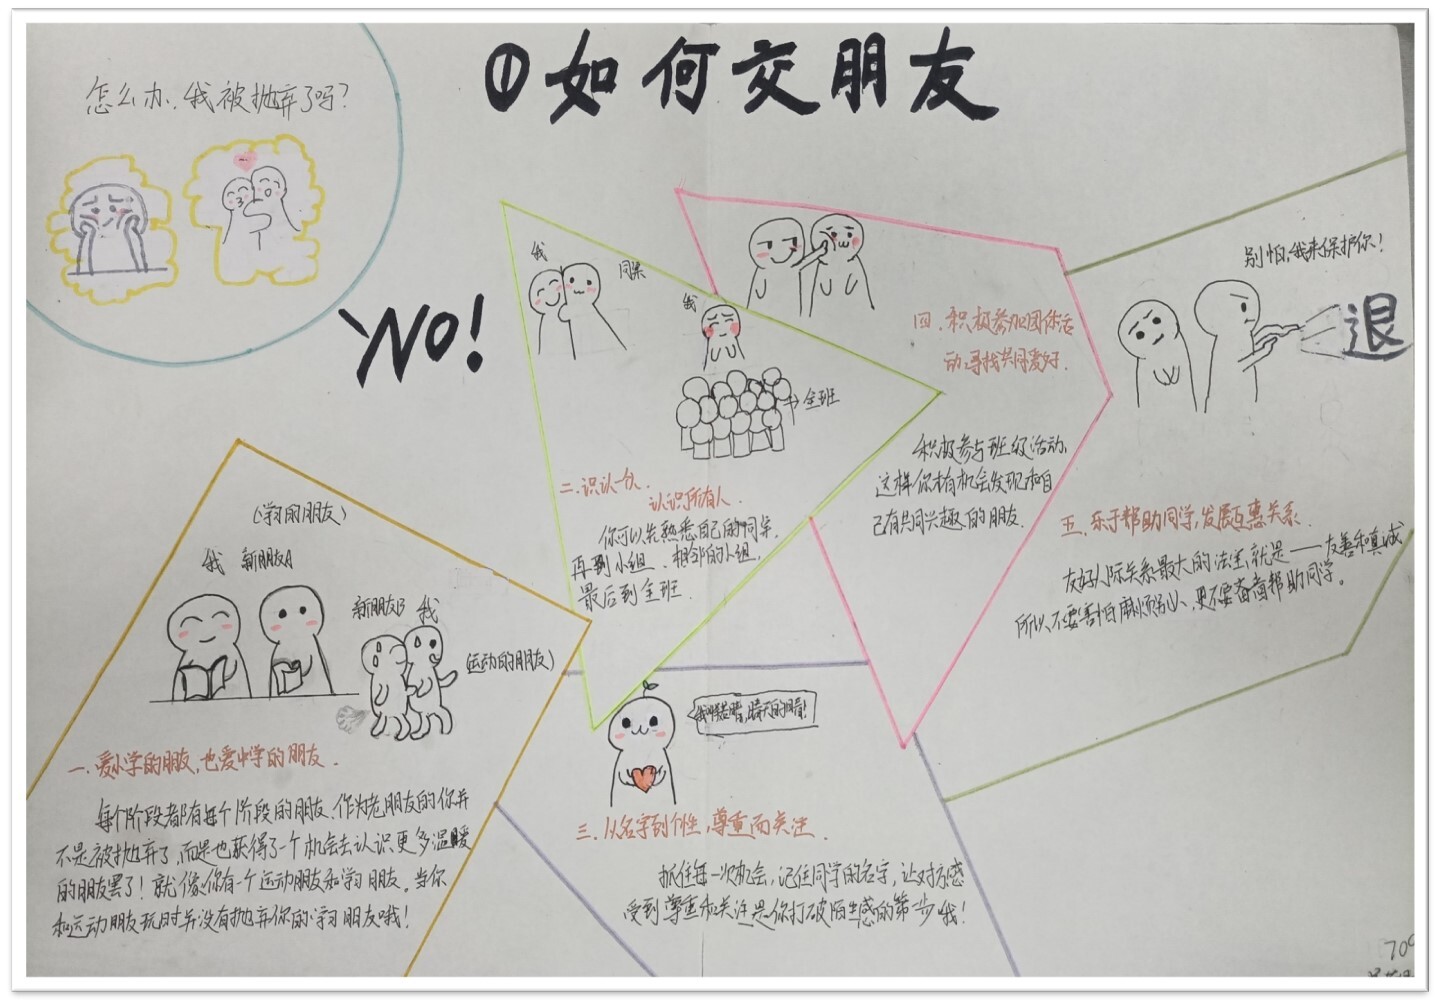 ①如何交朋友
怎么办,我被抛弃了吗?
NO!
(学习的朋友)
我 新朋友A
新朋友B 我
(运动的朋友)
一.爱小学的朋友,也爱中学的朋友.
每个阶段都有每个阶段的朋友,作为老朋友的你并
不是被抛弃了,而是也获得了一个机会去认识更多温暖
的朋友罢了!就像你有一个运动朋友和学习朋友.当你
和运动朋友玩时并没有抛弃你的学习朋友哦!
我
同桌
我
全班
二.识认一人.
认识所有人.
你可以先熟悉自己的同桌,
再到小组、相邻的小组,
最后到全班.
三.从名字到个性,尊重而关注.
抓住每一次机会,记住同学的名字,让对方感
受到尊重和关注是你打破陌生感的第一步哦!
四.积极参加团体活
动,寻找共同爱好.
积极参与班级活动,
这样你才有机会发现和自
己有共同兴趣的朋友.
别怕,我来保护你!
退
五.乐于帮助同学,发展互惠关系.
友好人际关系最大的法宝,就是——友善和真诚
所以,不要害怕麻烦别人,更不要吝啬帮助同学。